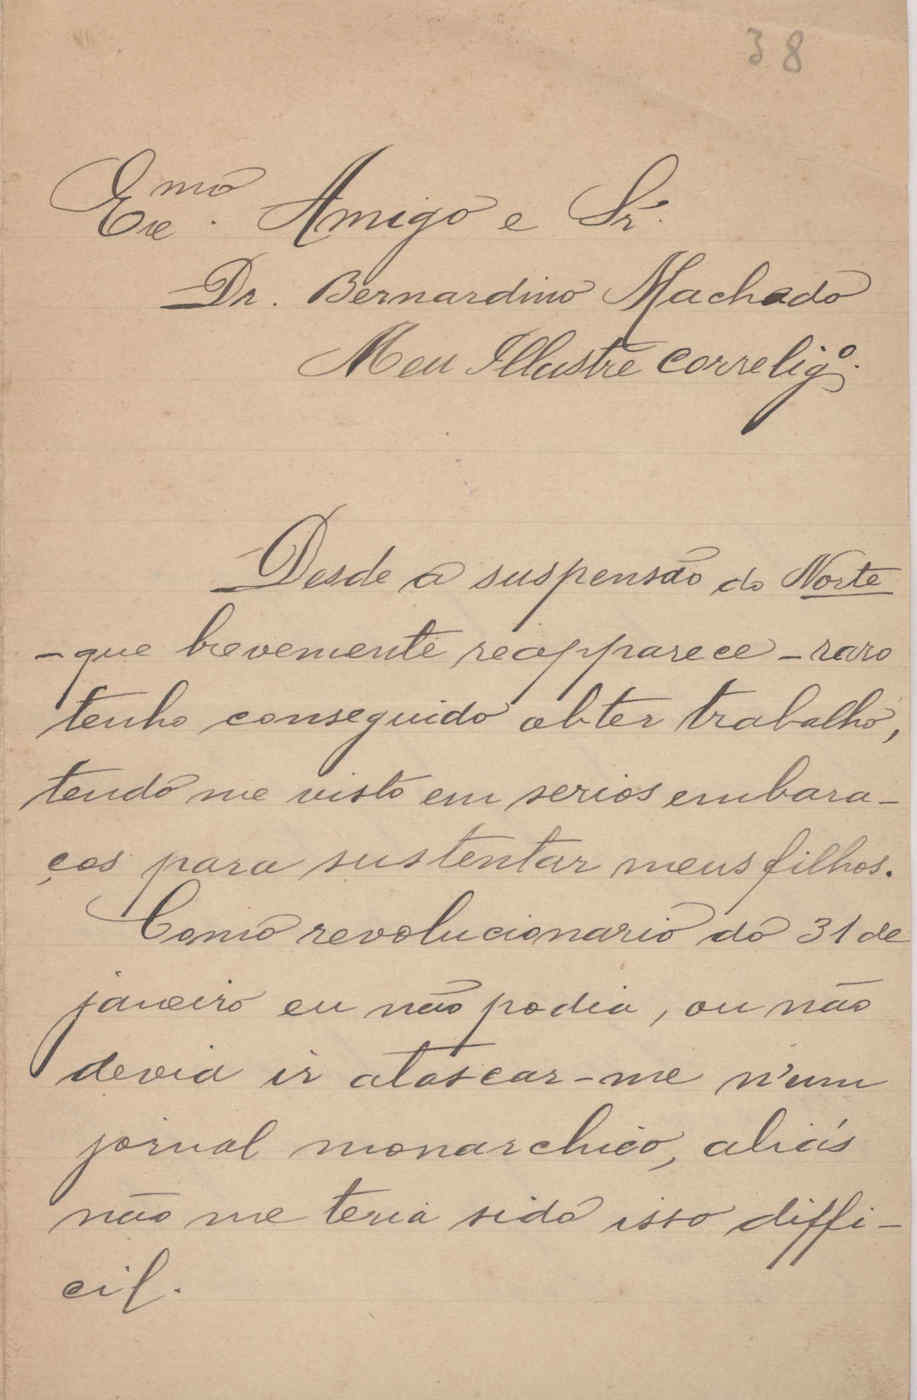 38
Exc.mo Amigo e Sr.
Dr. Bernardino Machado
Meu Illustre correlig.o
Desde a suspensão do Norte
- que brevemente reapparece - raro
tenho conseguido obter trabalho,
tendo me visto em serios embara-
ços para sustentar meus filhos.
Como revolucionario do 31 de
janeiro eu não podia, ou não
devia ir atascar-me n'um
jornal monarchico, aliás
não me teria sido isso diffi-
cil.